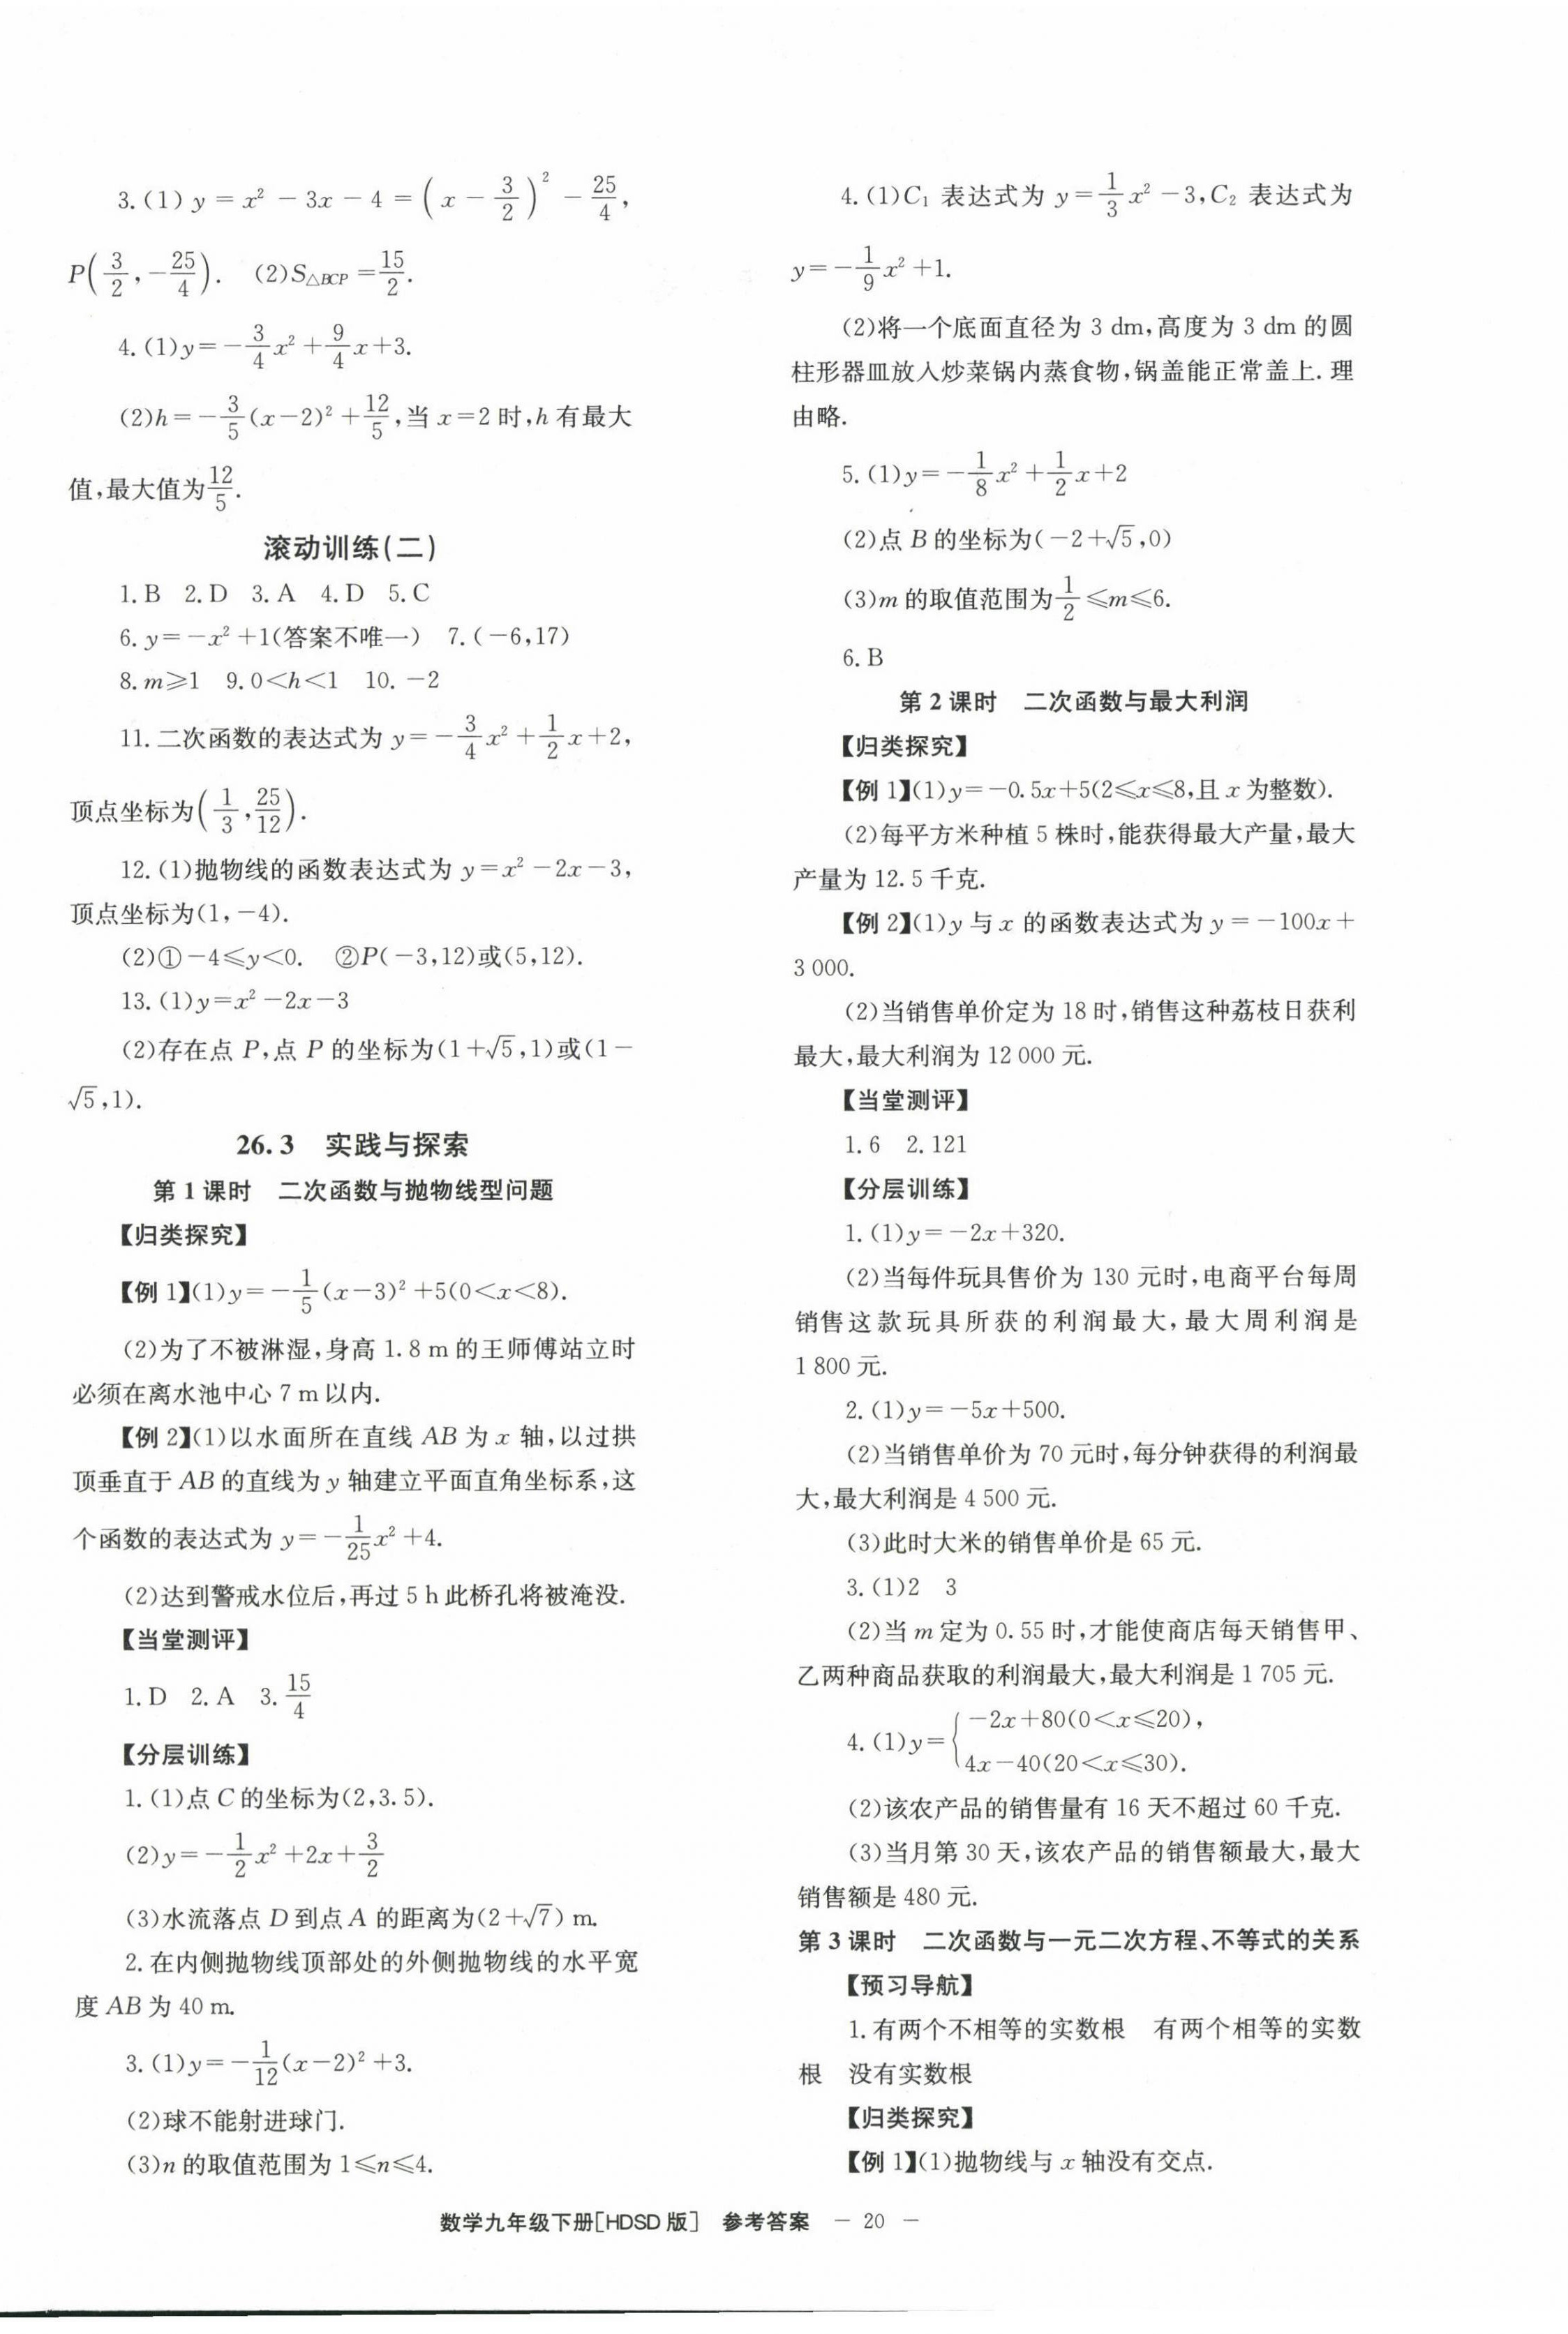 3.(1) y = x² － 3x － 4 = (x － 3/2)² － 25/4,
P(3/2,－25/4).  (2)S△BCP=15/2.
4.(1)y=－3/4x²＋9/4x＋3.
(2)h=－3/5(x－2)²＋12/5,当 x=2 时,h 有最大
值,最大值为12/5.
滚动训练(二)
1.B  2.D  3.A  4.D  5.C
6.y=－x²＋1(答案不唯一)  7.(－6,17)
8.m⩾1  9.0<h<1  10.－2
11.二次函数的表达式为 y=－3/4x²＋1/2x＋2,
顶点坐标为(1/3,25/12).
12.(1)抛物线的函数表达式为 y=x²－2x－3,
顶点坐标为(1,－4).
(2)①－4⩽y<0.  ②P(－3,12)或(5,12).
13.(1)y=x²－2x－3
(2)存在点 P,点 P 的坐标为(1＋√5,1)或(1－
√5,1).
26.3  实践与探索
第 1 课时  二次函数与抛物线型问题
【归类探究】
【例 1】(1)y=－1/5(x－3)²＋5(0<x<8).
(2)为了不被淋湿,身高 1.8 m 的王师傅站立时
必须在离水池中心 7 m 以内.
【例 2】(1)以水面所在直线 AB 为 x 轴,以过拱
顶垂直于 AB 的直线为 y 轴建立平面直角坐标系,这
个函数的表达式为 y=－1/25x²＋4.
(2)达到警戒水位后,再过 5 h 此桥孔将被淹没.
【当堂测评】
1.D  2.A  3.15/4
【分层训练】
1.(1)点 C 的坐标为(2,3.5).
(2)y=－1/2x²＋2x＋3/2
(3)水流落点 D 到点 A 的距离为(2＋√7) m.
2.在内侧抛物线顶部处的外侧抛物线的水平宽
度 AB 为 40 m.
3.(1)y=－1/12(x－2)²＋3.
(2)球不能射进球门.
(3)n 的取值范围为 1⩽n⩽4.
4.(1)C₁ 表达式为 y=1/3x²－3,C₂ 表达式为
y=－1/9x²＋1.
(2)将一个底面直径为 3 dm,高度为 3 dm 的圆
柱形器皿放入炒菜锅内蒸食物,锅盖能正常盖上.理
由略.
5.(1)y=－1/8x²＋1/2x＋2
(2)点 B 的坐标为(－2＋√5,0)
(3)m 的取值范围为1/2⩽m⩽6.
6.B
第 2 课时  二次函数与最大利润
【归类探究】
【例 1】(1)y=－0.5x＋5(2⩽x⩽8,且 x 为整数).
(2)每平方米种植 5 株时,能获得最大产量,最大
产量为 12.5 千克.
【例 2】(1)y 与 x 的函数表达式为 y=－100x＋
3 000.
(2)当销售单价定为 18 时,销售这种荔枝日获利
最大,最大利润为 12 000 元.
【当堂测评】
1.6  2.121
【分层训练】
1.(1)y=－2x＋320.
(2)当每件玩具售价为 130 元时,电商平台每周
销售这款玩具所获的利润最大,最大周利润是
1 800 元.
2.(1)y=－5x＋500.
(2)当销售单价为 70 元时,每分钟获得的利润最
大,最大利润是 4 500 元.
(3)此时大米的销售单价是 65 元.
3.(1)2  3
(2)当 m 定为 0.55 时,才能使商店每天销售甲、
乙两种商品获取的利润最大,最大利润是 1 705 元.
4.(1)y={－2x＋80(0<x⩽20),
4x－40(20<x⩽30).
(2)该农产品的销售量有 16 天不超过 60 千克.
(3)当月第 30 天,该农产品的销售额最大,最大
销售额是 480 元.
第 3 课时  二次函数与一元二次方程、不等式的关系
【预习导航】
1.有两个不相等的实数根  有两个相等的实数
根  没有实数根
【归类探究】
【例 1】(1)抛物线与 x 轴没有交点.
数学九年级下册[HDSD 版]  参考答案  － 20 －